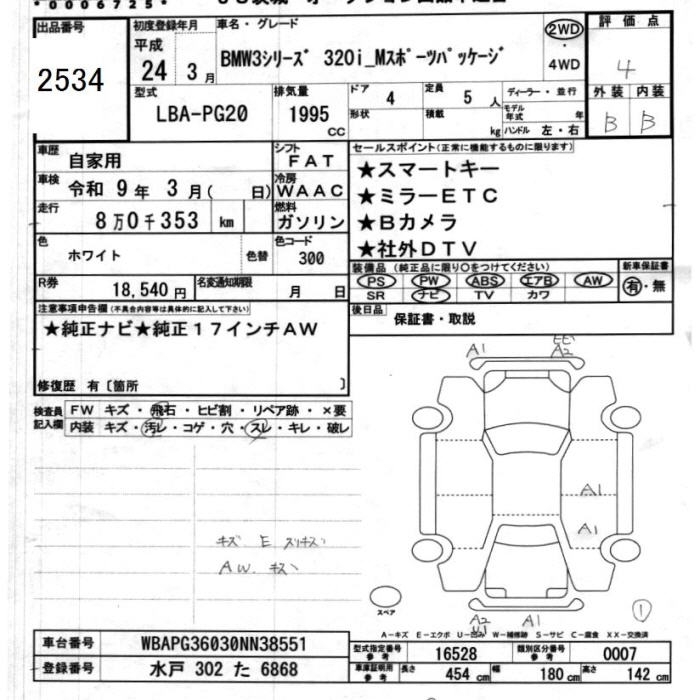 *0006725*
出品番号
2534
初度登録年月
平成
24 3 月
車名・グレード
BMW3シリーズ 320i_Mスポーツパッケージ
2WD
・
4WD
評価点
4
外装 内装
B B
型式
LBA-PG20
排気量
1995
CC
ドア
4
定員
5 人
形状
積載
kg
ディーラー・並行
モデル年式 年
ハンドル 左・右
車歴
自家用
シフト
FAT
車検
令和 9 年 3 月( 日)
冷房
WAAC
走行
8万0千353 km
燃料
ガソリン
色
ホワイト
色替
色コード
300
R券
18,540 円
名変通知期限
月 日
セールスポイント(正常に機能するものに限ります)
★スマートキー
★ミラーETC
★Bカメラ
★社外DTV
装備品 (純正品に限り○をつけてください)
PS PW ABS エアB AW
SR ナビ TV カワ
新車保証書
有・無
後日品
保証書・取説
注意事項申告欄(不具合内容等は具体的に記入して下さい)
★純正ナビ★純正17インチAW
修復歴 有〔箇所 〕
検査員記入欄
FW キズ・飛石・ヒビ割・リペア跡・×要
内装 キズ・汚レ・コゲ・穴・スレ・キレ・破レ
キズ E スリキズ
AW. キズ
A1
A2
A1
A1
スペア
A2
A1
1
A-キズ E-エクボ U-凹み W-補修跡 S-サビ C-腐食 XX-交換済
車台番号
WBAPG36030NN38551
登録番号
水戸 302 た 6868
型式指定番号
参考
16528
類別区分番号
参考
0007
車庫証明用
参考
長さ
454 cm
幅
180 cm
高さ
142 cm